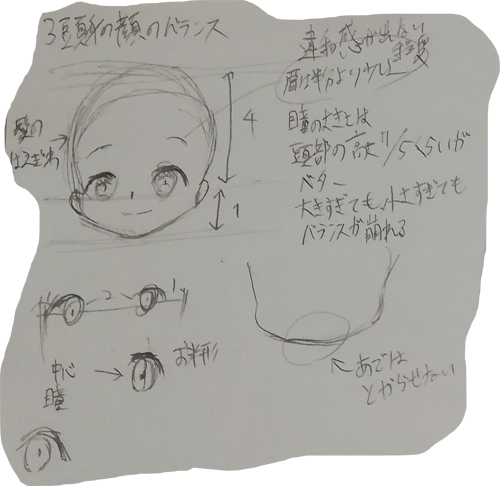 3頭身の顔のバランス
違和感が出ない程度
眉は半分より少し上
髪の
はえぎわ
4
1
瞳の大きさは
頭部の高さ1/5くらいが
ベター
大きすぎても小さすぎても
バランスが崩れる
2
1
中心
瞳
お半形
あごは
とがらせない